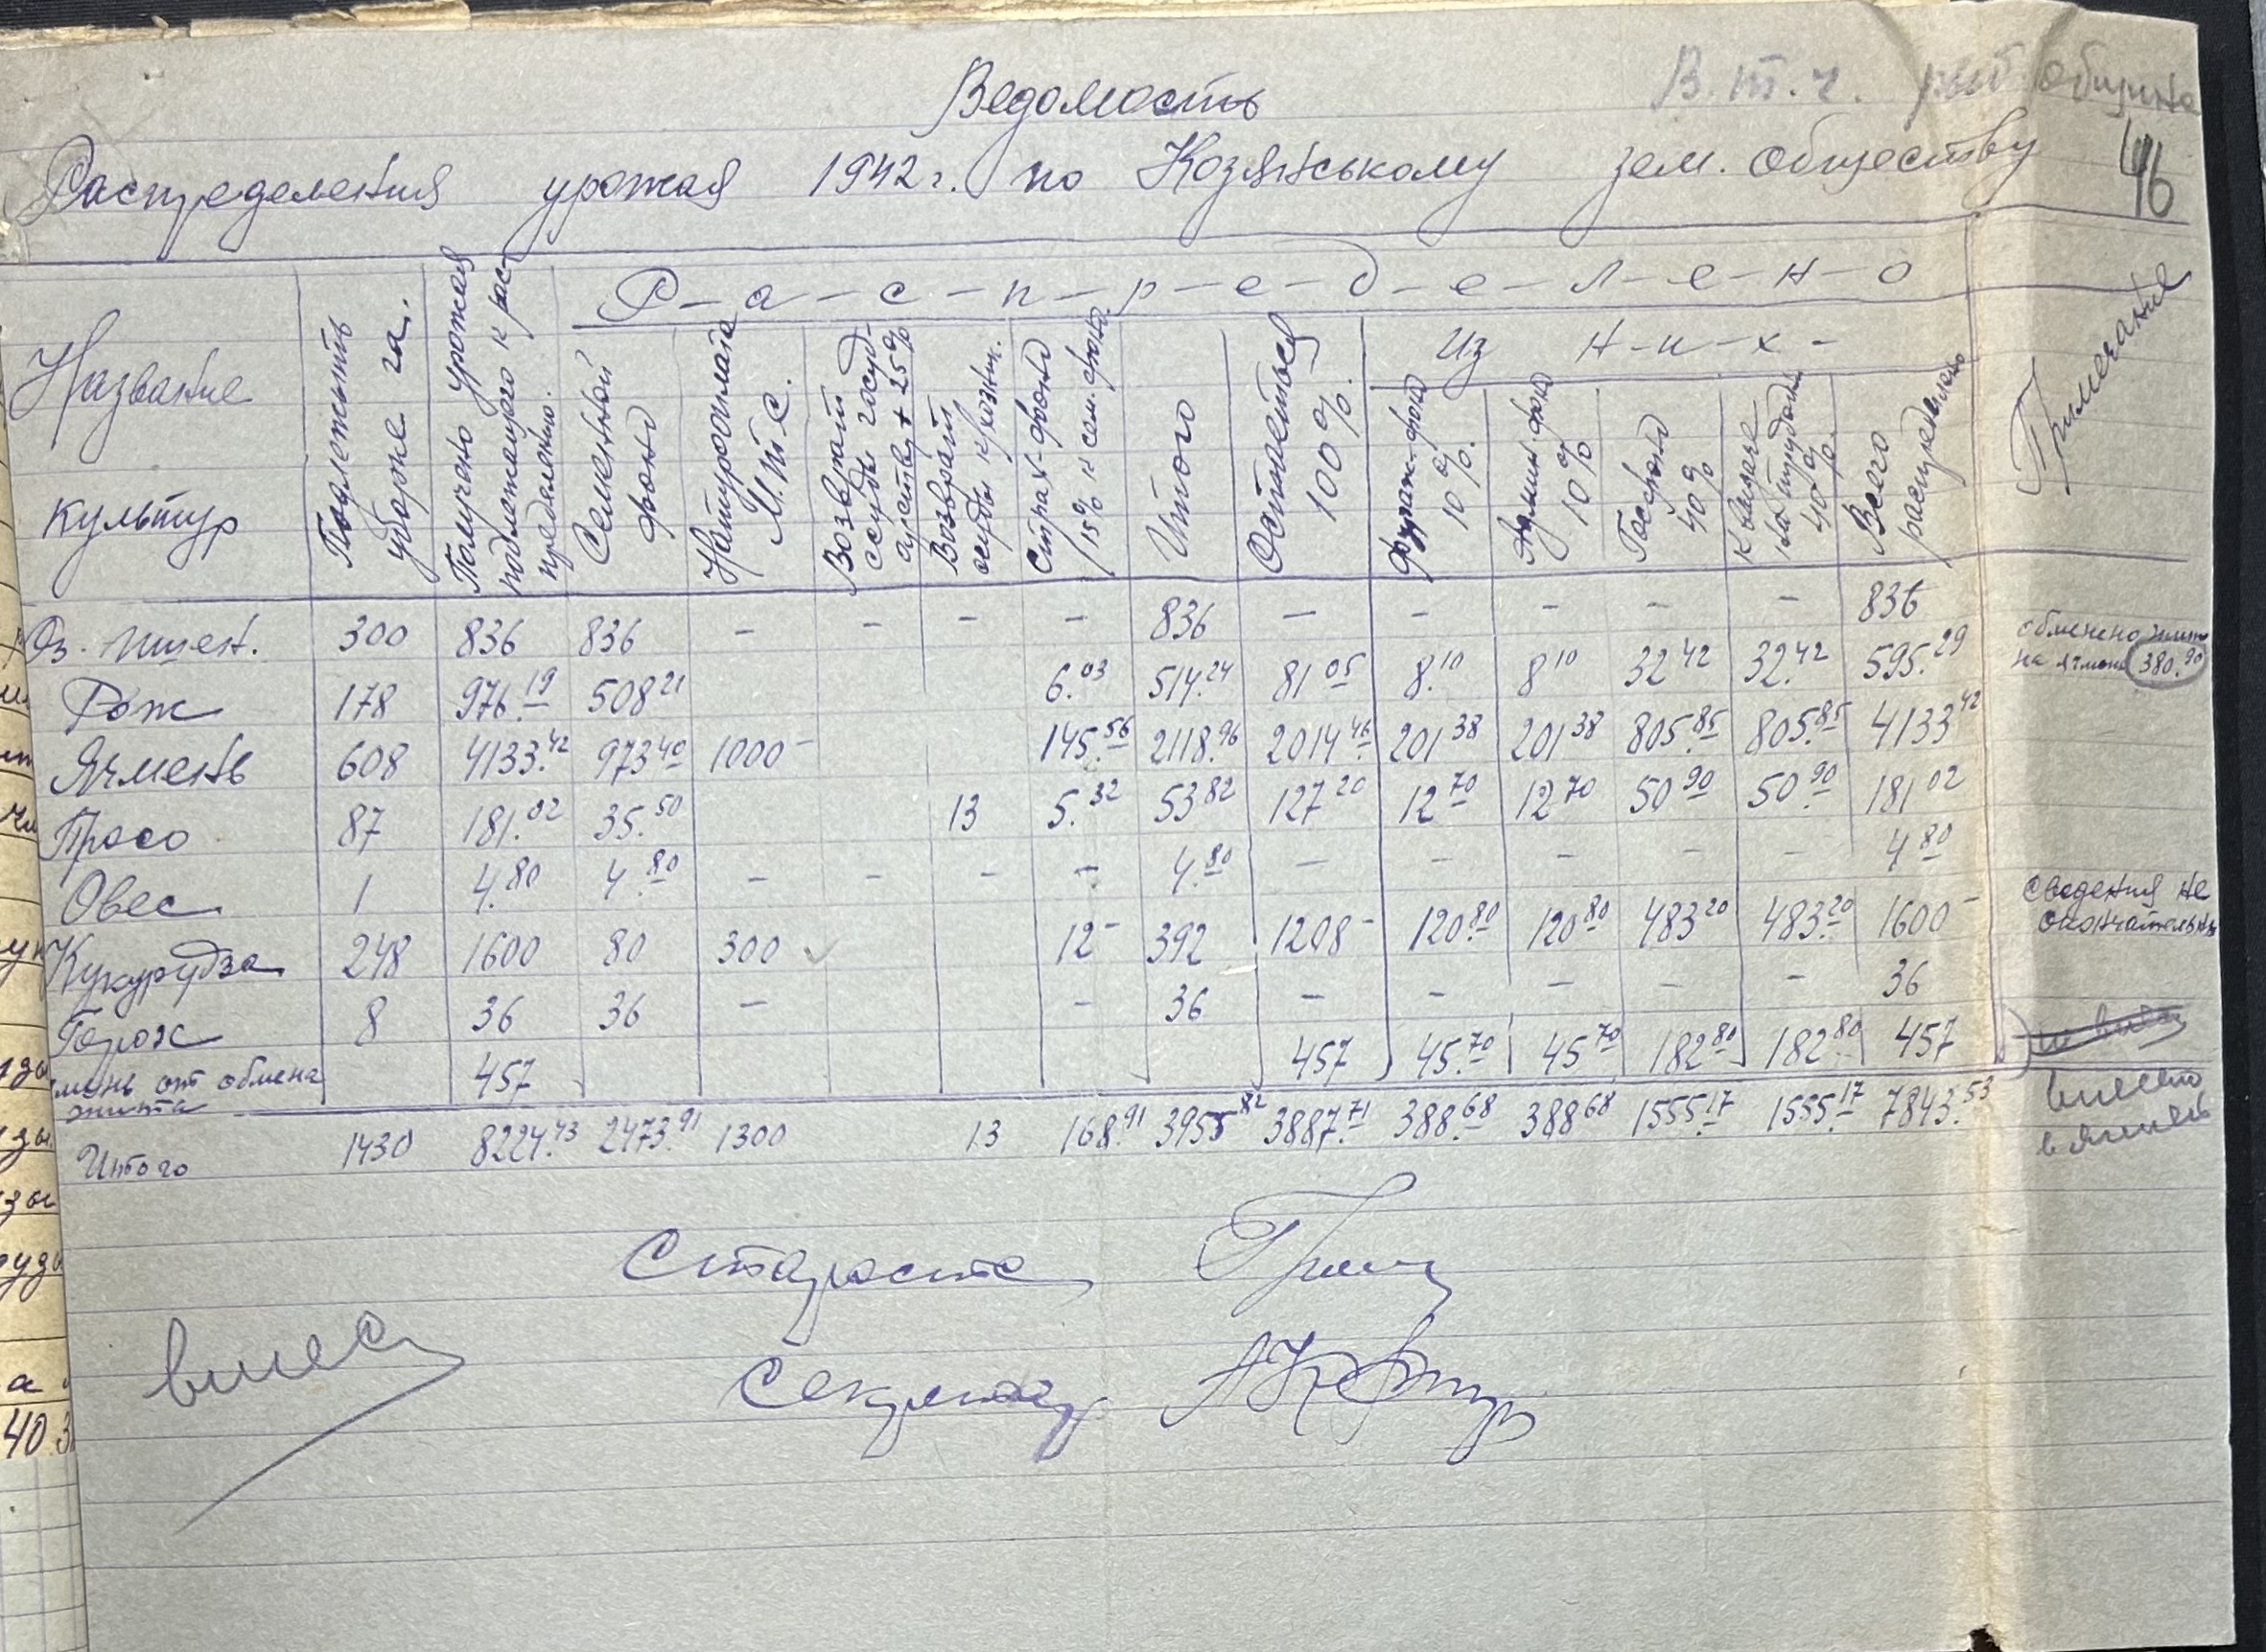 В.т.ч. община
Ведомость
46
Распределения урожая 1942 г. по Козянському зем. обществу
Название культур
Подлежить уборке га.
Получено урожая подлежащого к распределению.
Р-а-с-п-р-е-д-е-л-е-н-о
Семенной фонд
Натуроплата М.Т.С.
Возврат ссуды государству + 25%
Возврат ссуды
Страх-фонд /15% к сем. фонд.
Итого
Остаеться 100%.
Из н-и-х-
Фураж-фонд 10%.
Админ-фонд 10%
Госфонд 40%
40%.
Всего распределено
Примечание
Оз. пшен. 300 836 836 - - - - 836 - - - - - 836
Рож 178 976.19 508 21 6.03 514.24 81 05 8.10 8 10 32 42 32.42 595.29 обменено жито на ячмень 380.90
Ячмень 608 4133.42 973 40 1000- 145.56 2118.96 2014 46 201 38 201 38 805.85 805.85 4133 42
Просо 87 181.02 35.50 13 5.32 53 82 127 20 12 70 12 70 50 90 50.90 181 02
Овес 1 4.80 4.80 - - - - 4.80 - - - - - 4 80
Кукурудза 248 1600 80 300 12- 392 1208- 120.80 120 80 483 20 483.20 1600- сведения не окончательны
Горох 8 36 36 - - 36 - - - - - 36
мень от обмена жита 457 457 45.70 45 70 182 80 182 80 457
Итого 1430 8224.43 2473.91 1300 13 168.91 3955 82 3887.71 388.68 388 68 1555.17 1555.17 7843.53
Староста
Секретар